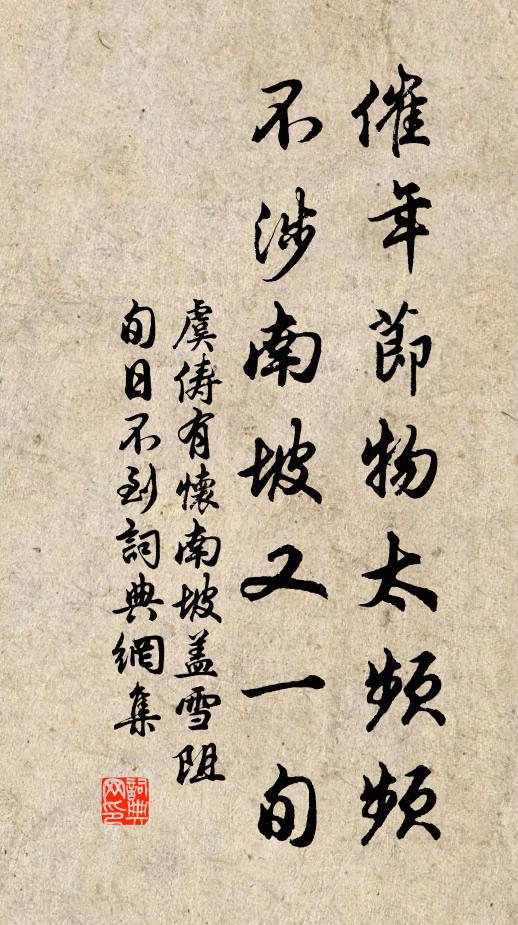 催年節物太頻頻
不涉南坡又一旬
虞儔有懷南坡蓋雪阻
旬日不到詞典網集
詞典網印